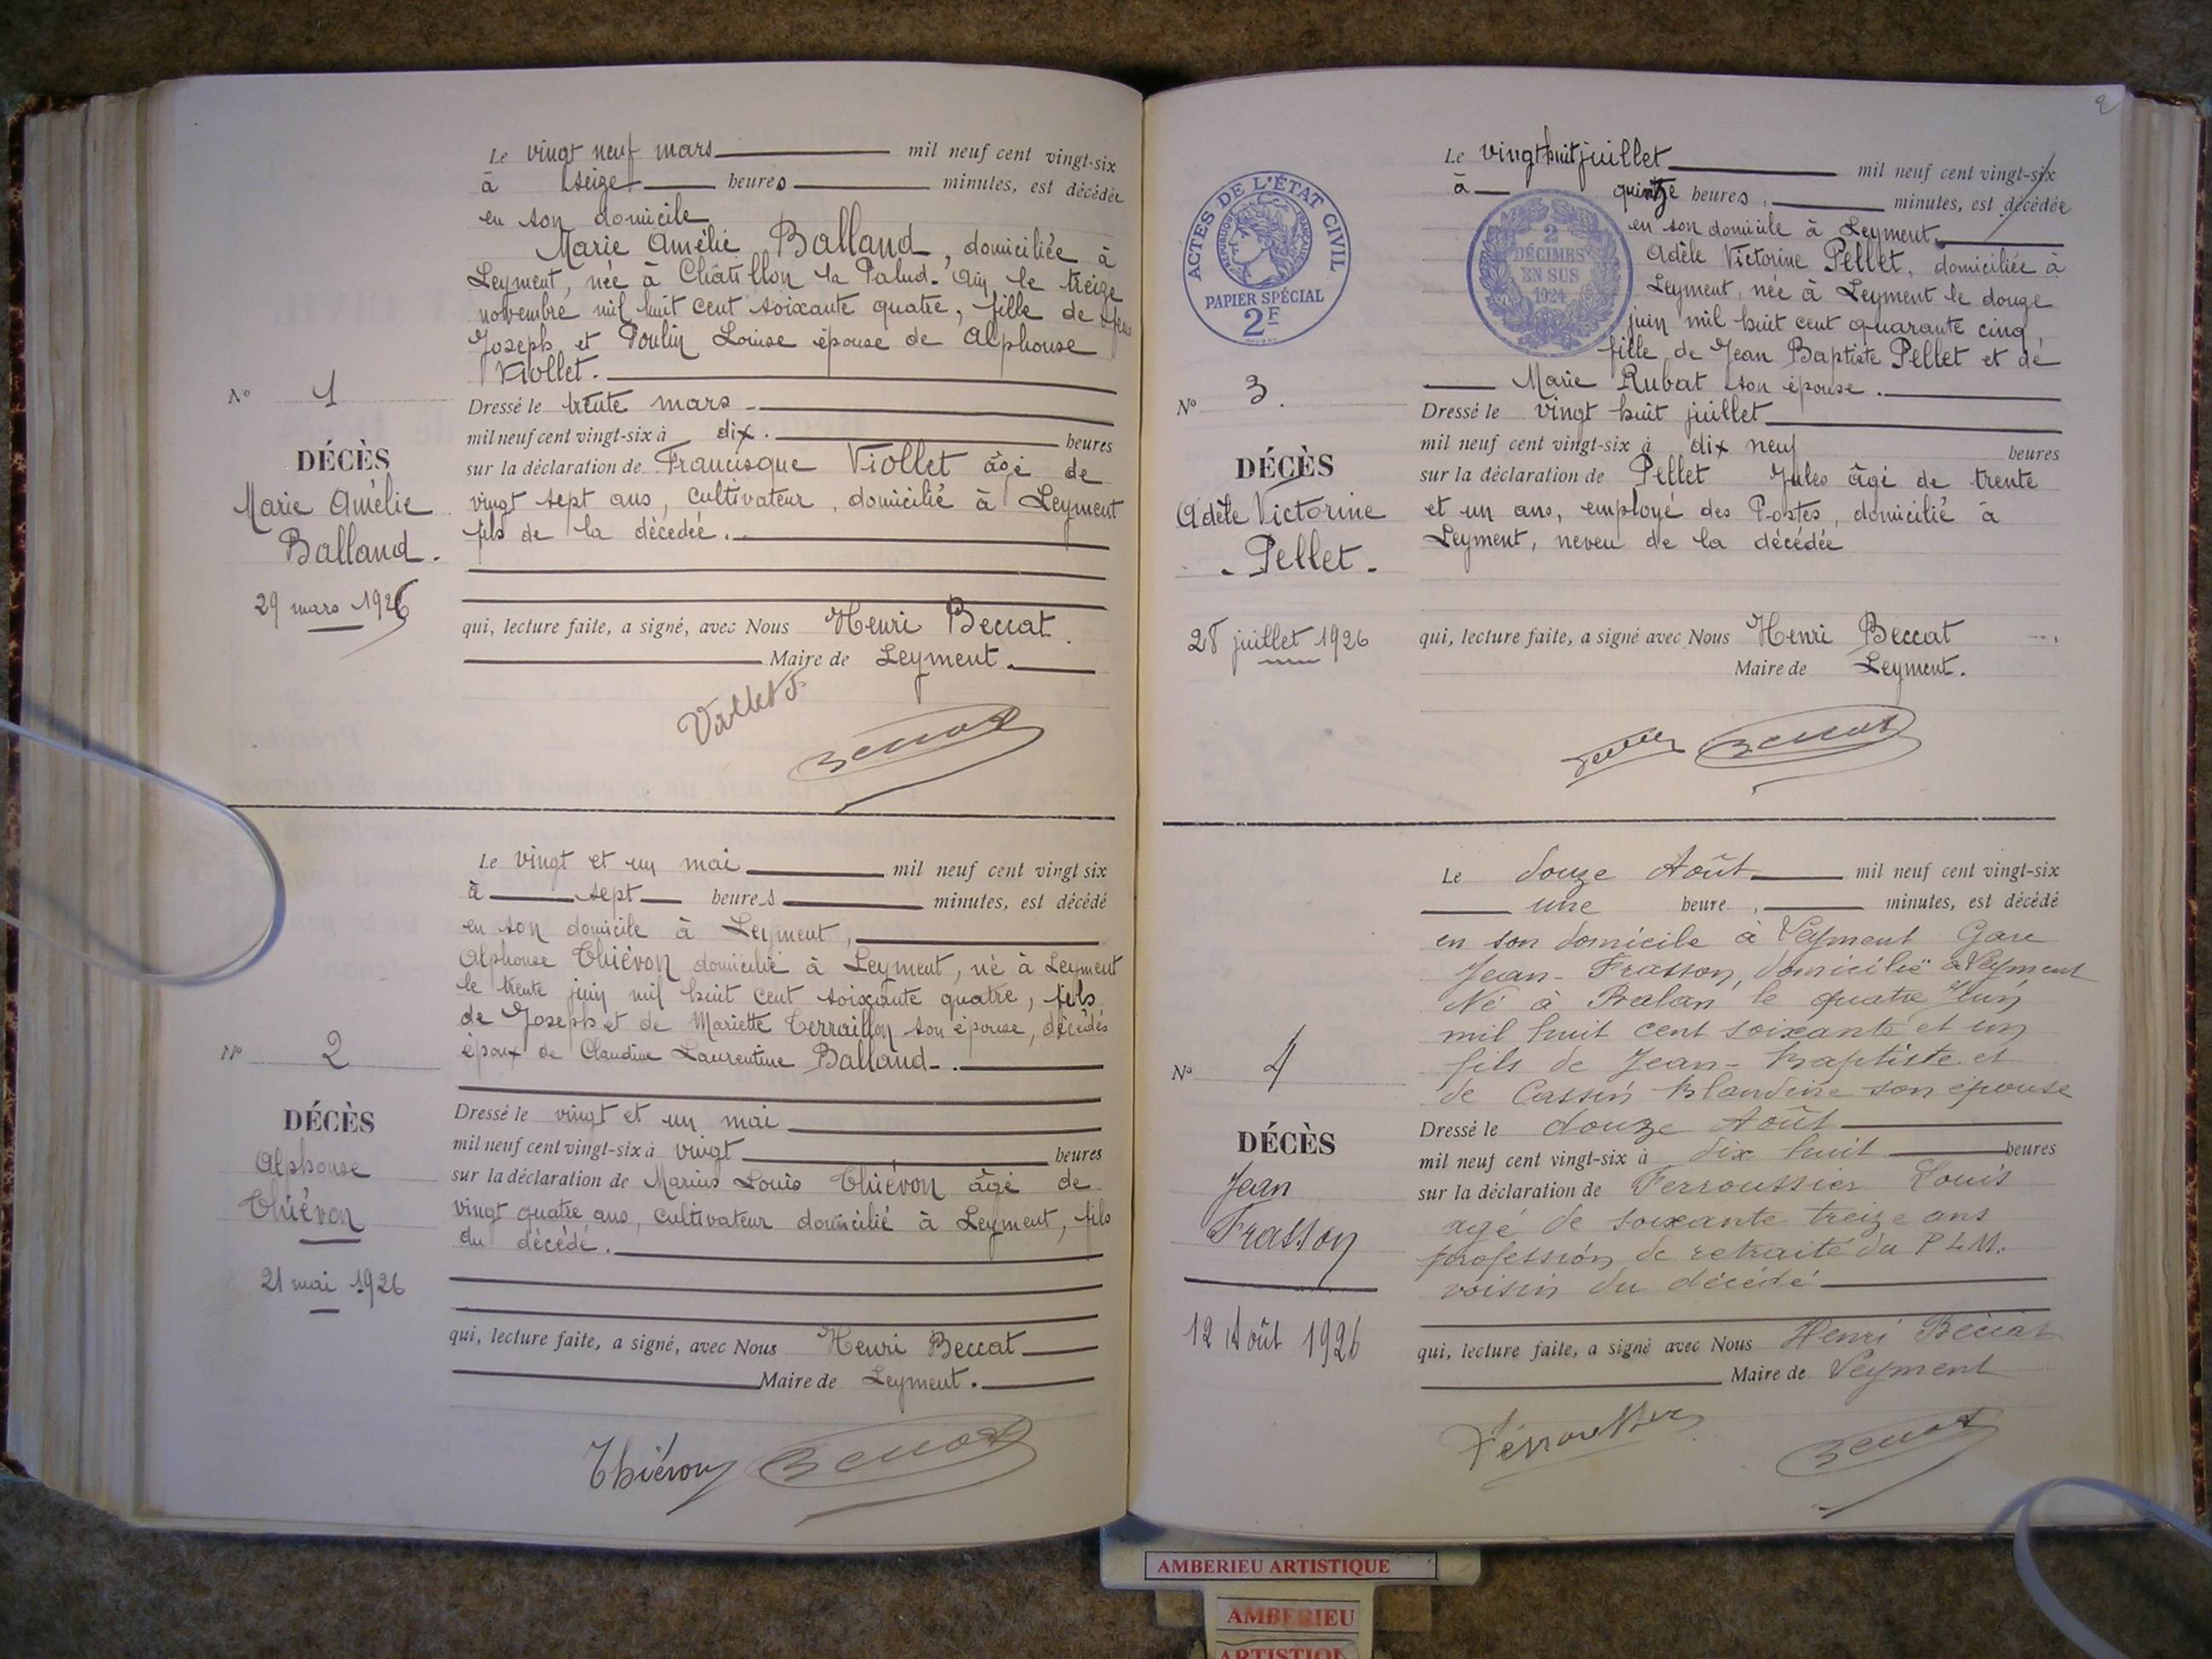 Le vingt neuf mars mil neuf cent vingt-six
à seize heures minutes, est décédée
en son domicile
Marie Amélie Balland, domiciliée à
Leyment, née à Châtillon la Palud - Ain, le treize
novembre mil huit cent soixante quatre, fille de feu
Joseph et Poulin Louise épouse de Alphonse
Viollet.
N° 1
Dressé le trente mars
mil neuf cent vingt-six à dix. heures
DÉCÈS
sur la déclaration de Francisque Viollet âgé de
Marie Amélie
vingt sept ans, cultivateur, domicilié à Leyment
Balland.
fils de la décédée.
29 mars 1926
qui, lecture faite, a signé, avec Nous Henri Beccat.
Maire de Leyment.
Beccat
Le vingt et un mai mil neuf cent vingt six
à sept heures minutes, est décédé
en son domicile à Leyment,
Alphonse Thiévon domicilié à Leyment, né à Leyment
le trente juin mil huit cent soixante quatre, fils
de Joseph et de Mariette Terraillon son épouse, décédés
époux de Claudine Laurentine Balland.
N° 2
Dressé le vingt et un mai
DÉCÈS
mil neuf cent vingt-six à vingt heures
Alphonse
sur la déclaration de Marius Louis Thiévon âgé de
Thiévon
vingt quatre ans, cultivateur domicilié à Leyment, fils
du décédé.
21 mai 1926
qui, lecture faite, a signé, avec Nous Henri Beccat
Maire de Leyment.
Thiévon Beccat
2
ACTES DE L'ÉTAT CIVIL
RÉPUBLIQUE FRANÇAISE
PAPIER SPÉCIAL
2F
2
DÉCIMES
EN SUS
1924
Le vingt huit juillet mil neuf cent vingt-six
à quinze heures, minutes, est décédée
en son domicile à Leyment,
Adèle Victorine Pellet, domiciliée à
Leyment, née à Leyment le douze
juin mil huit cent quarante cinq
fille de Jean Baptiste Pellet et de
Marie Rubat son épouse.
N° 3.
Dressé le vingt huit juillet
mil neuf cent vingt-six à dix neuf heures
DÉCÈS
sur la déclaration de Pellet Jules âgé de trente
Adèle Victorine
et un ans, employé des Postes, domicilié à
- Pellet -
Leyment, neveu de la décédée
28 juillet 1926
qui, lecture faite, a signé avec Nous Henri Beccat
Maire de Leyment.
Beccat
Le douze Août mil neuf cent vingt-six
une heure, minutes, est décédé
en son domicile à Leyment Gare
Jean-Frasson, domicilié à Leyment
Né à Balan le quatre Juin
mil huit cent soixante et un
fils de Jean-Baptiste et
de Cassin Blandine son épouse
N° 4
Dressé le douze Août
DÉCÈS
mil neuf cent vingt-six à dix huit heures
Jean
sur la déclaration de Ferroussier Louis
Frasson
agé de soixante treize ans
profession de retraité du P.L.M.
voisin du décédé
12 Août 1926
qui, lecture faite, a signé avec Nous Henri Beccat
Maire de Leyment
Ferroussier Beccat
AMBERIEU ARTISTIQUE
AMBERIEU
ARTISTIQUE